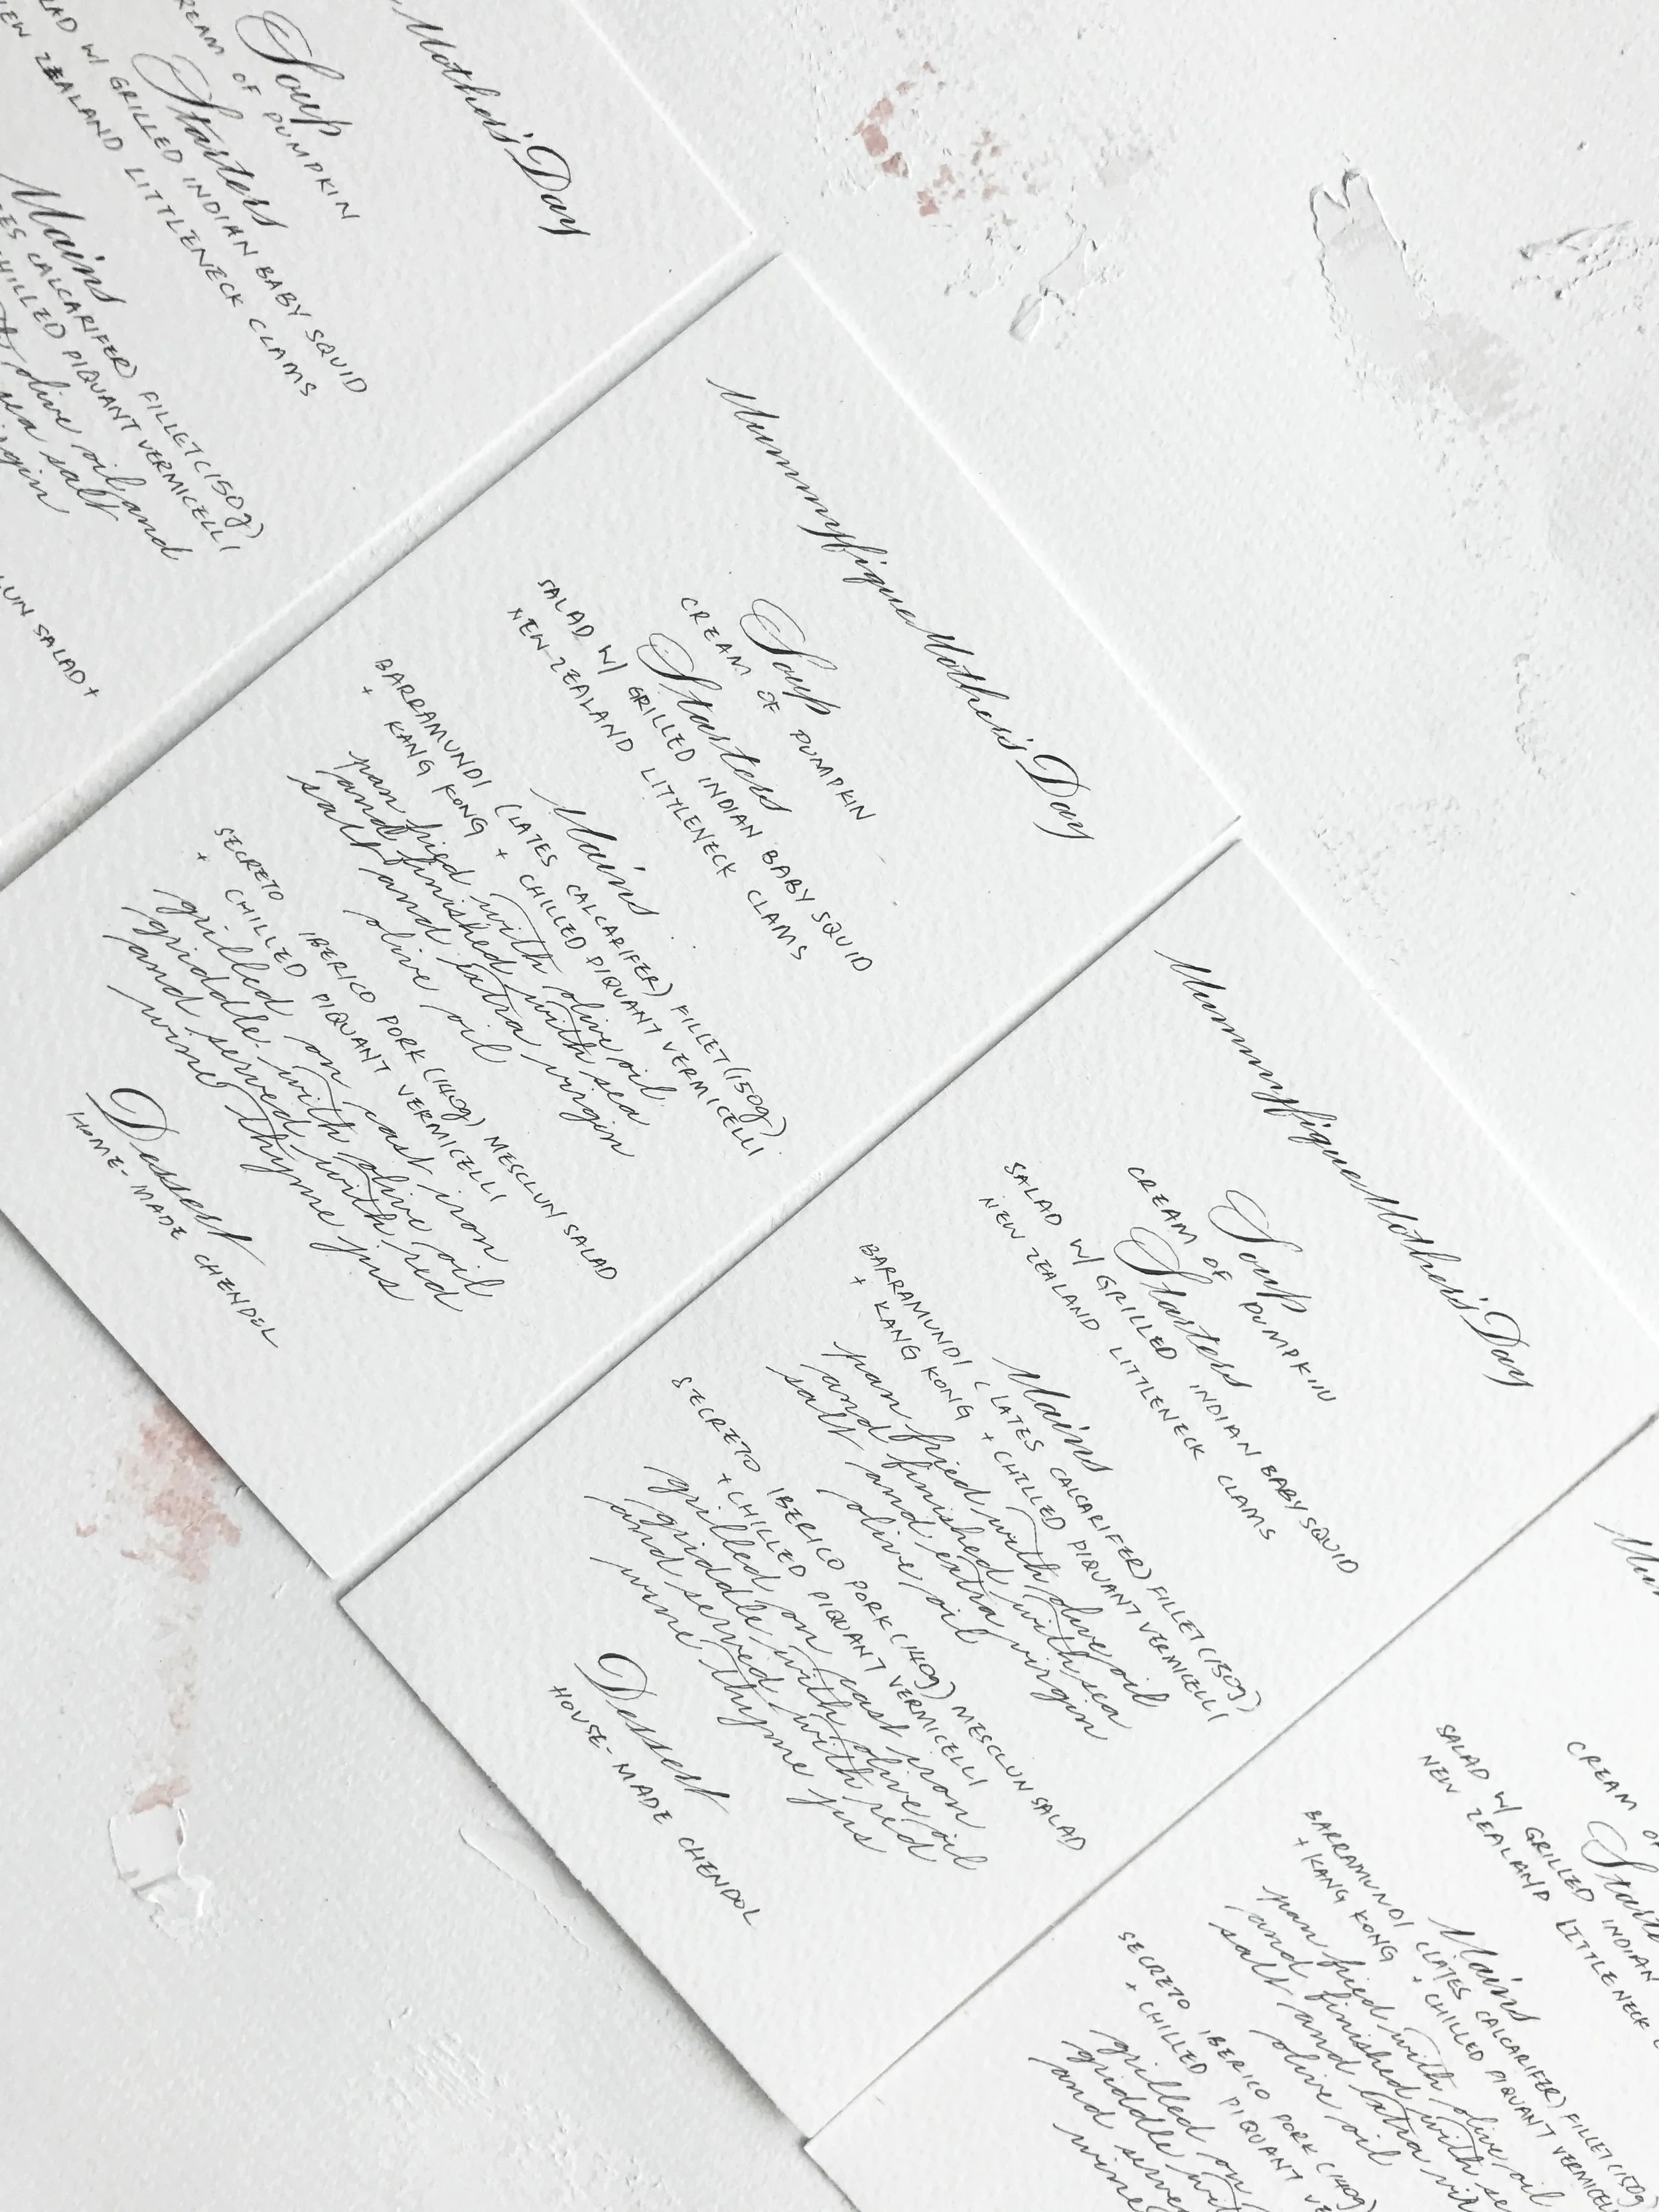 Mothers' Day
Soup
CREAM OF PUMPKIN
Starters
W/ GRILLED INDIAN BABY SQUID
NEW ZEALAND LITTLENECK CLAMS
Mains
CALCARIFER) FILLET (150g)
CHILLED PIQUANT VERMICELLI
olive oil and
sea salt
SALAD +
Mummyfique Mothers' Day
Soup
CREAM OF PUMPKIN
Starters
SALAD W/ GRILLED INDIAN BABY SQUID
NEW ZEALAND LITTLENECK CLAMS
Mains
BARRAMUNDI (LATES CALCARIFER) FILLET (150g)
+ KANG KONG + CHILLED PIQUANT VERMICELLI
pan fried with olive oil
and finished with sea
salt and extra virgin
olive oil
SECRETO IBERICO PORK (140g) MESCLUN SALAD
+ CHILLED PIQUANT VERMICELLI
grilled on cast iron
griddle with olive oil
and served with red
wine thyme jus
Dessert
HOME-MADE CHENDOL
Mummyfique Mothers' Day
Soup
CREAM OF PUMPKIN
Starters
SALAD W/ GRILLED INDIAN BABY SQUID
NEW ZEALAND LITTLENECK CLAMS
Mains
BARRAMUNDI (LATES CALCARIFER) FILLET (150g)
+ KANG KONG + CHILLED PIQUANT VERMICELLI
pan fried with olive oil
and finished with sea
salt and extra virgin
olive oil
SECRETO IBERICO PORK (140g) MESCLUN SALAD
+ CHILLED PIQUANT VERMICELLI
grilled on cast iron
griddle with olive oil
and served with red
wine thyme jus
Dessert
HOUSE-MADE CHENDOL
CREAM
SALAD W/ GRILLED INDIAN
NEW ZEALAND LITTLENECK
Mains
BARRAMUNDI (LATES CALCARIFER) FILLET (150g)
+ KANG KONG + CHILLED PIQUANT VERMICELLI
pan fried with olive oil
and finished with
salt and extra
olive oil
SECRETO IBERICO PORK (140g)
+ CHILLED PIQUANT
grilled on
griddle
and
wine